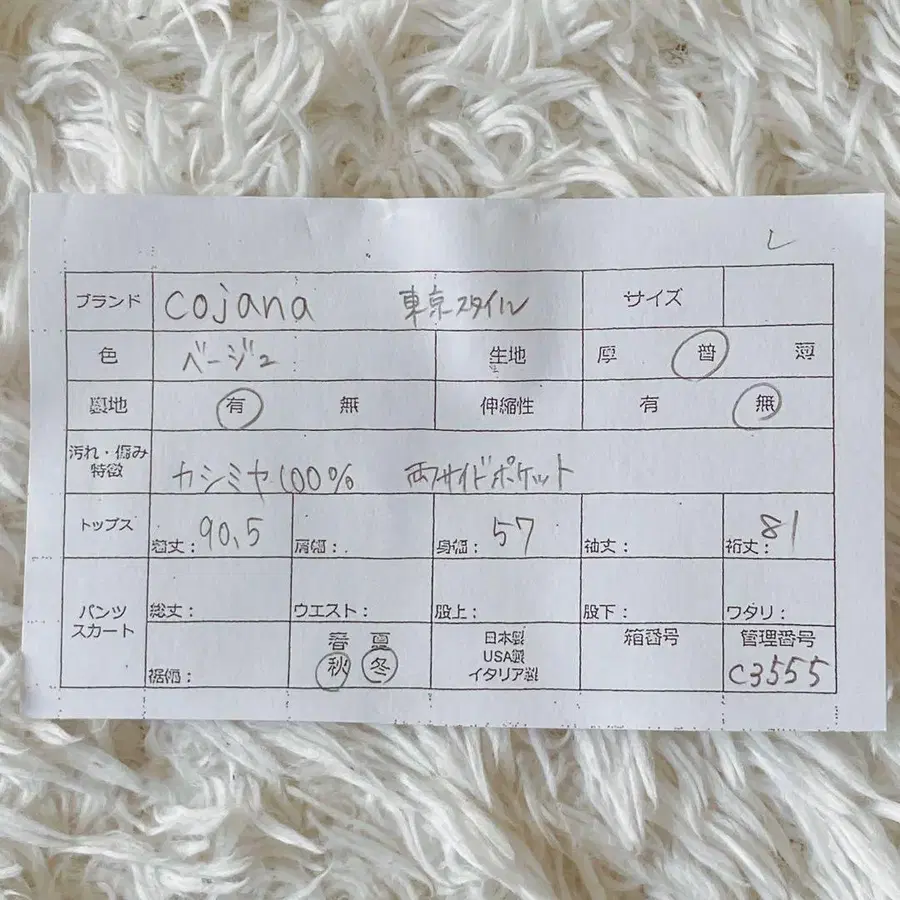 レ
ブランド cojana 東京スタイル サイズ
色 ベージュ 生地 厚 普 薄
裏地 有 無 伸縮性 有 無
汚れ・傷み 特徴 カシミヤ100% 両サイドポケット
トップス 着丈: 90.5 肩幅: 身幅: 57 袖丈: 裄丈: 81
パンツ スカート 総丈: ウエスト: 股上: 股下: ワタリ:
裾幅: 春 夏 秋 冬 日本製 USA製 イタリア製 箱番号 管理番号 C3555